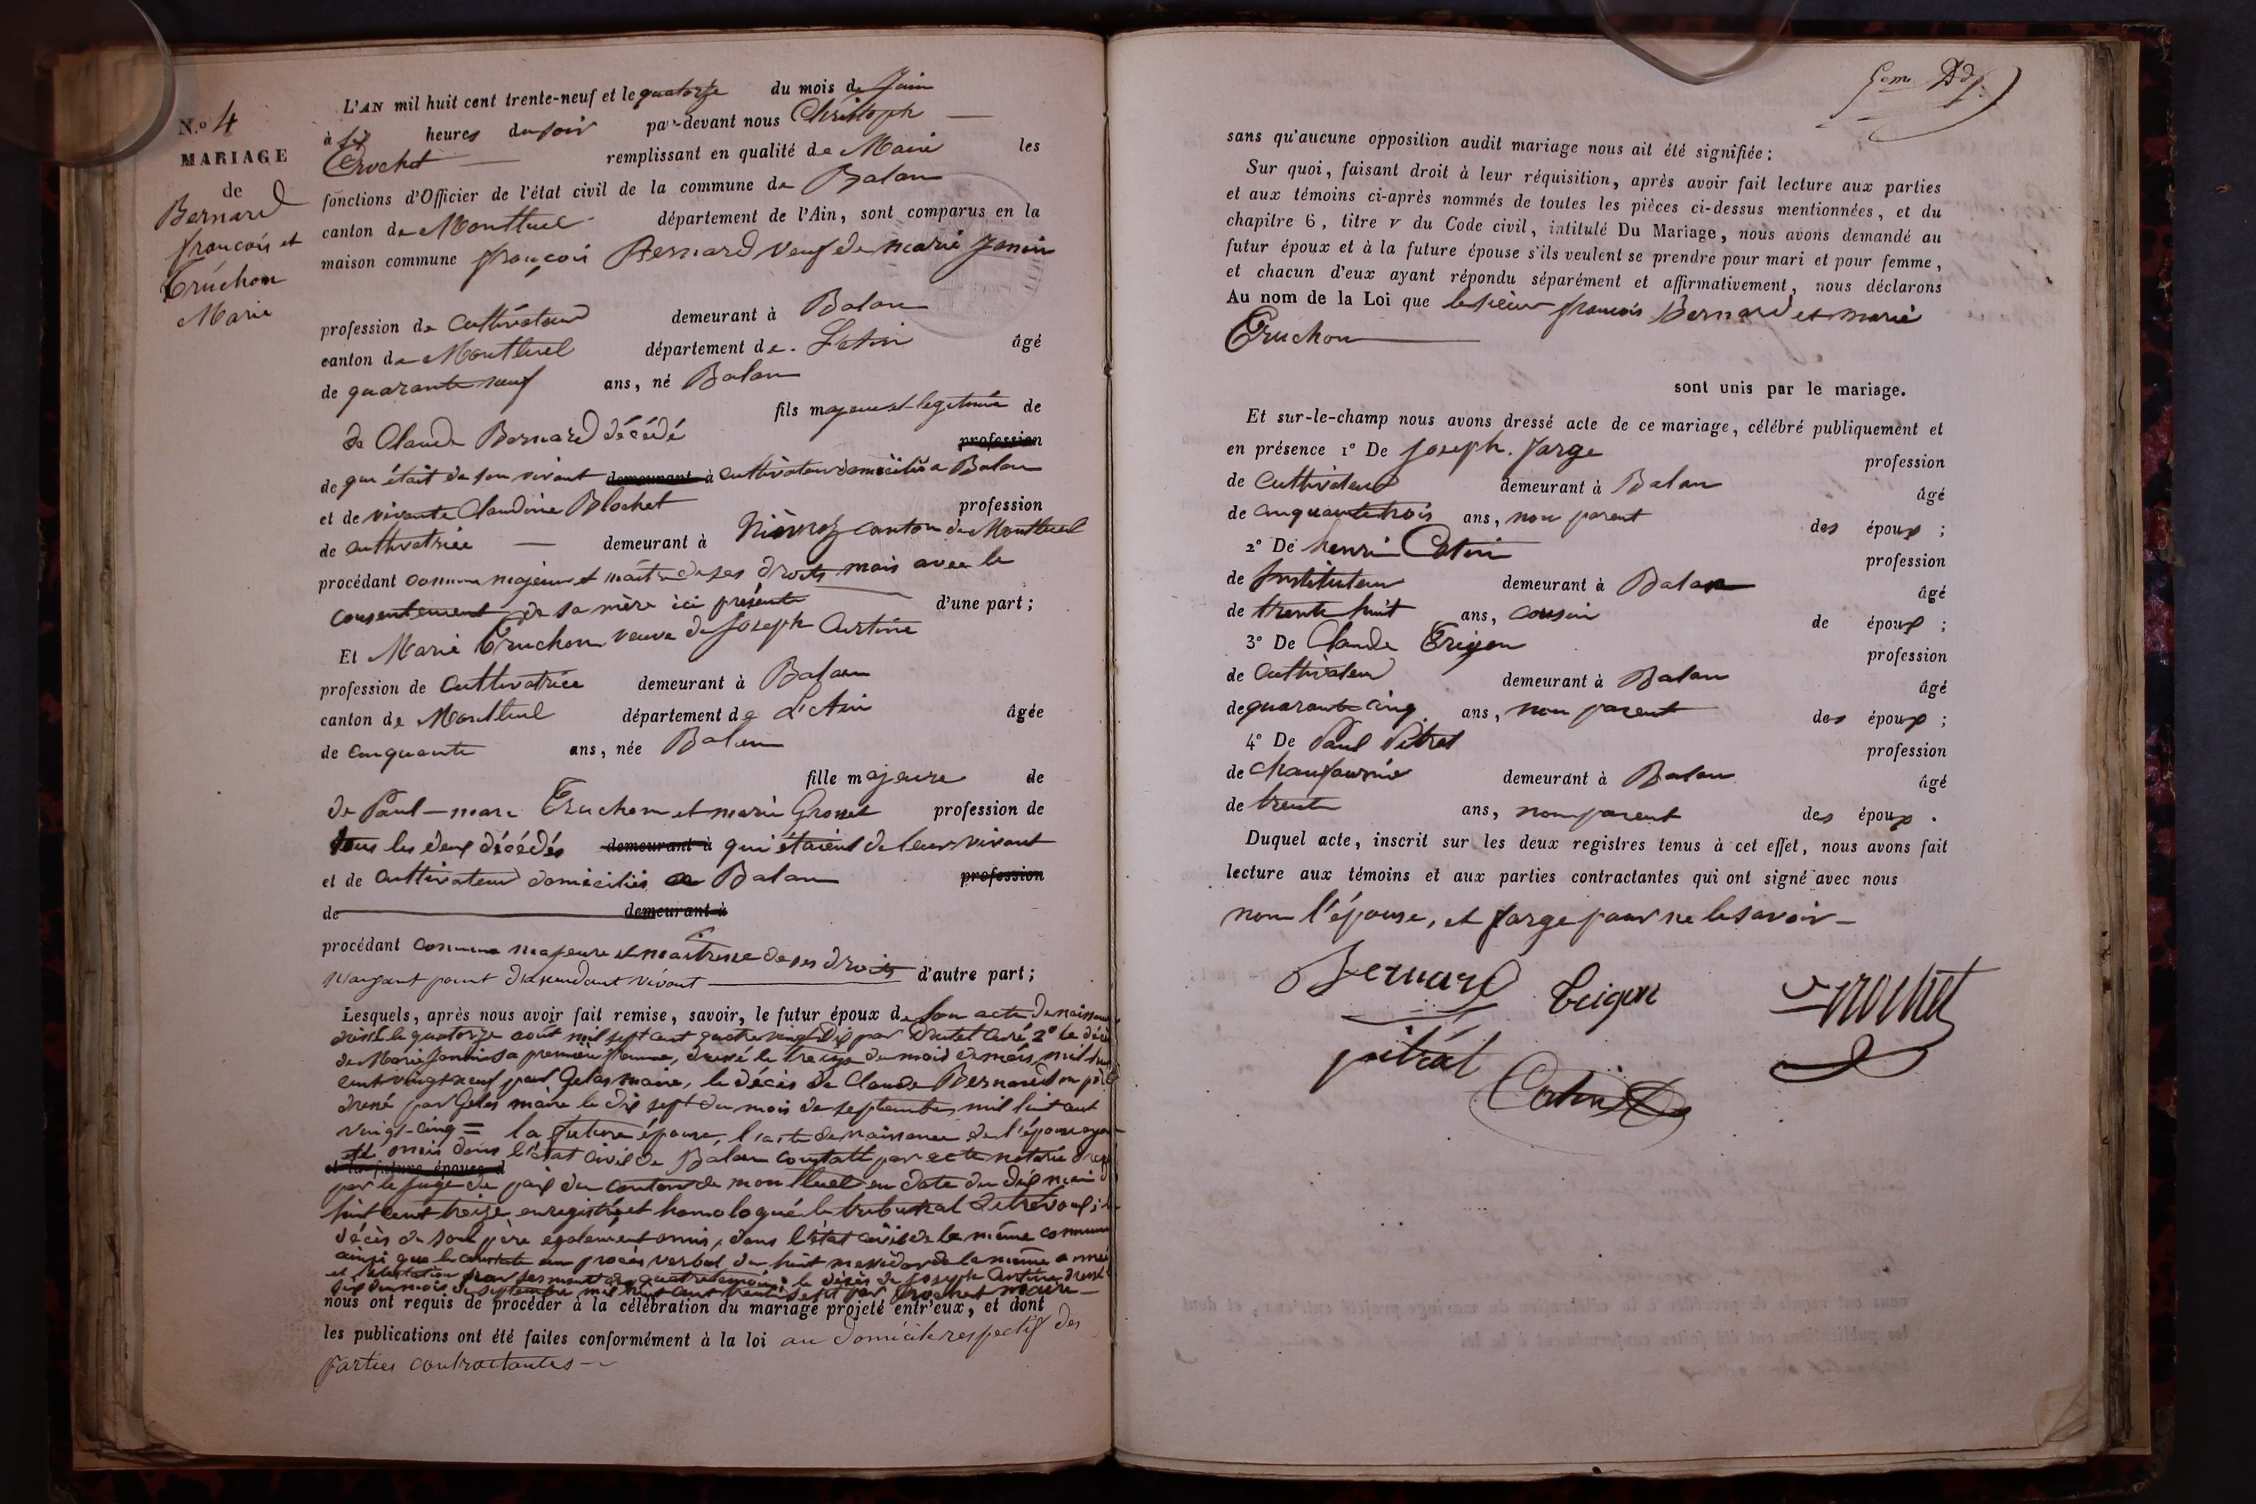 N.o 4
MARIAGE
de
Bernard
françois et
Truchon
Marie
L'AN mil huit cent trente-neuf et le quatorze du mois de Juin
à six heures du soir par-devant nous Christoph
Crochet remplissant en qualité de Maire les
fonctions d'Officier de l'état civil de la commune de Balan
canton de Montluel département de l'Ain, sont comparus en la
maison commune françois Bernard veuf de marie Janin
profession de Cultivateur demeurant à Balan
canton de Montluel département de L'Ain âgé
de quarante neuf ans, né Balan
fils majeur et legitime de
de Claude Bernard décédé profession
de qui était de son vivant demeurant à cultivateur domicilié a Balan
et de vivante Claudine Blochet profession
de cultivatrice demeurant à Nièvroz canton de Montluel
procédant comme majeur et maitre de ses droits mais avec le
consentement de sa mère ici présente d'une part ;
Et Marie Truchon veuve de Joseph Antine
profession de Cultivatrice demeurant à Balan
canton de Montluel département de L'Ain âgée
de cinquante ans, née Balan
fille majeure de
de Paul-marc Truchon et marie Grosset profession de
tous les deux décédés demeurant à qui étaient de leur vivant
et de cultivateur domiciliés a Balan profession
de demeurant à
procédant comme majeure et maitresse de ses droits
n'ayant point d'ascendant vivant d'autre part ;
Lesquels, après nous avoir fait remise, savoir, le futur époux de son acte de naissance
le quatorze août mil sept cent quatre vingt dix par curé 2° le décès
de Marie Janin sa première femme, dressé le treize du mois de mars mil huit
cent vingt neuf par Gelas maire, le décès de Claude Bernard son père
dressé par Gelas maire le dix sept du mois de septembre mil huit cent
vingt-cinq = la future épouse, l'acte de naissance de l'épouse ayant
été omis dans l'état civil de Balan constaté par acte notorié dressé
et la future épouse d
par le juge de paix du canton de montluel en date du dix mai
huit cent treize enregistré et homologué le tribunal de trévoux ; le
décès de son père également omis, dans l'état civil de la même commune
ainsi que le constate un procès verbal du huit messidor de la même année
et l'attestation par serment de quatre temoins : le décès de Joseph Antine dressé
dix du mois de septembre mil huit cent trente sept par Crochet maire
nous ont requis de procéder à la célébration du mariage projeté entr'eux, et dont
les publications ont été faites conformément à la loi au domicile respectif des
parties contractantes
sans qu'aucune opposition audit mariage nous ait été signifiée ;
Sur quoi, faisant droit à leur réquisition, après avoir fait lecture aux parties
et aux témoins ci-après nommés de toutes les pièces ci-dessus mentionnées, et du
chapitre 6, titre v du Code civil, intitulé Du Mariage, nous avons demandé au
futur époux et à la future épouse s'ils veulent se prendre pour mari et pour femme,
et chacun d'eux ayant répondu séparément et affirmativement, nous déclarons
Au nom de la Loi que le sieur françois Bernard et marie
Truchon
sont unis par le mariage.
Et sur-le-champ nous avons dressé acte de ce mariage, célébré publiquement et
en présence 1° De Joseph Jarge profession
de Cultivateur demeurant à Balan âgé
de cinquante trois ans, non parent des époux ;
2° De henri Catin profession
de Instituteur demeurant à Balan âgé
de trente huit ans, cousin de époux ;
3° De Claude Trigon profession
de Cultivateur demeurant à Balan âgé
de quarante cinq ans, non parent des époux ;
4° De Paul Pitrat profession
de chaufournié demeurant à Balan âgé
de trente ans, non parent des époux.
Duquel acte, inscrit sur les deux registres tenus à cet effet, nous avons fait
lecture aux témoins et aux parties contractantes qui ont signé avec nous
non l'épouse, et Jarge pour ne le savoir
Bernard Trigon Crochet
pitrat
Catin